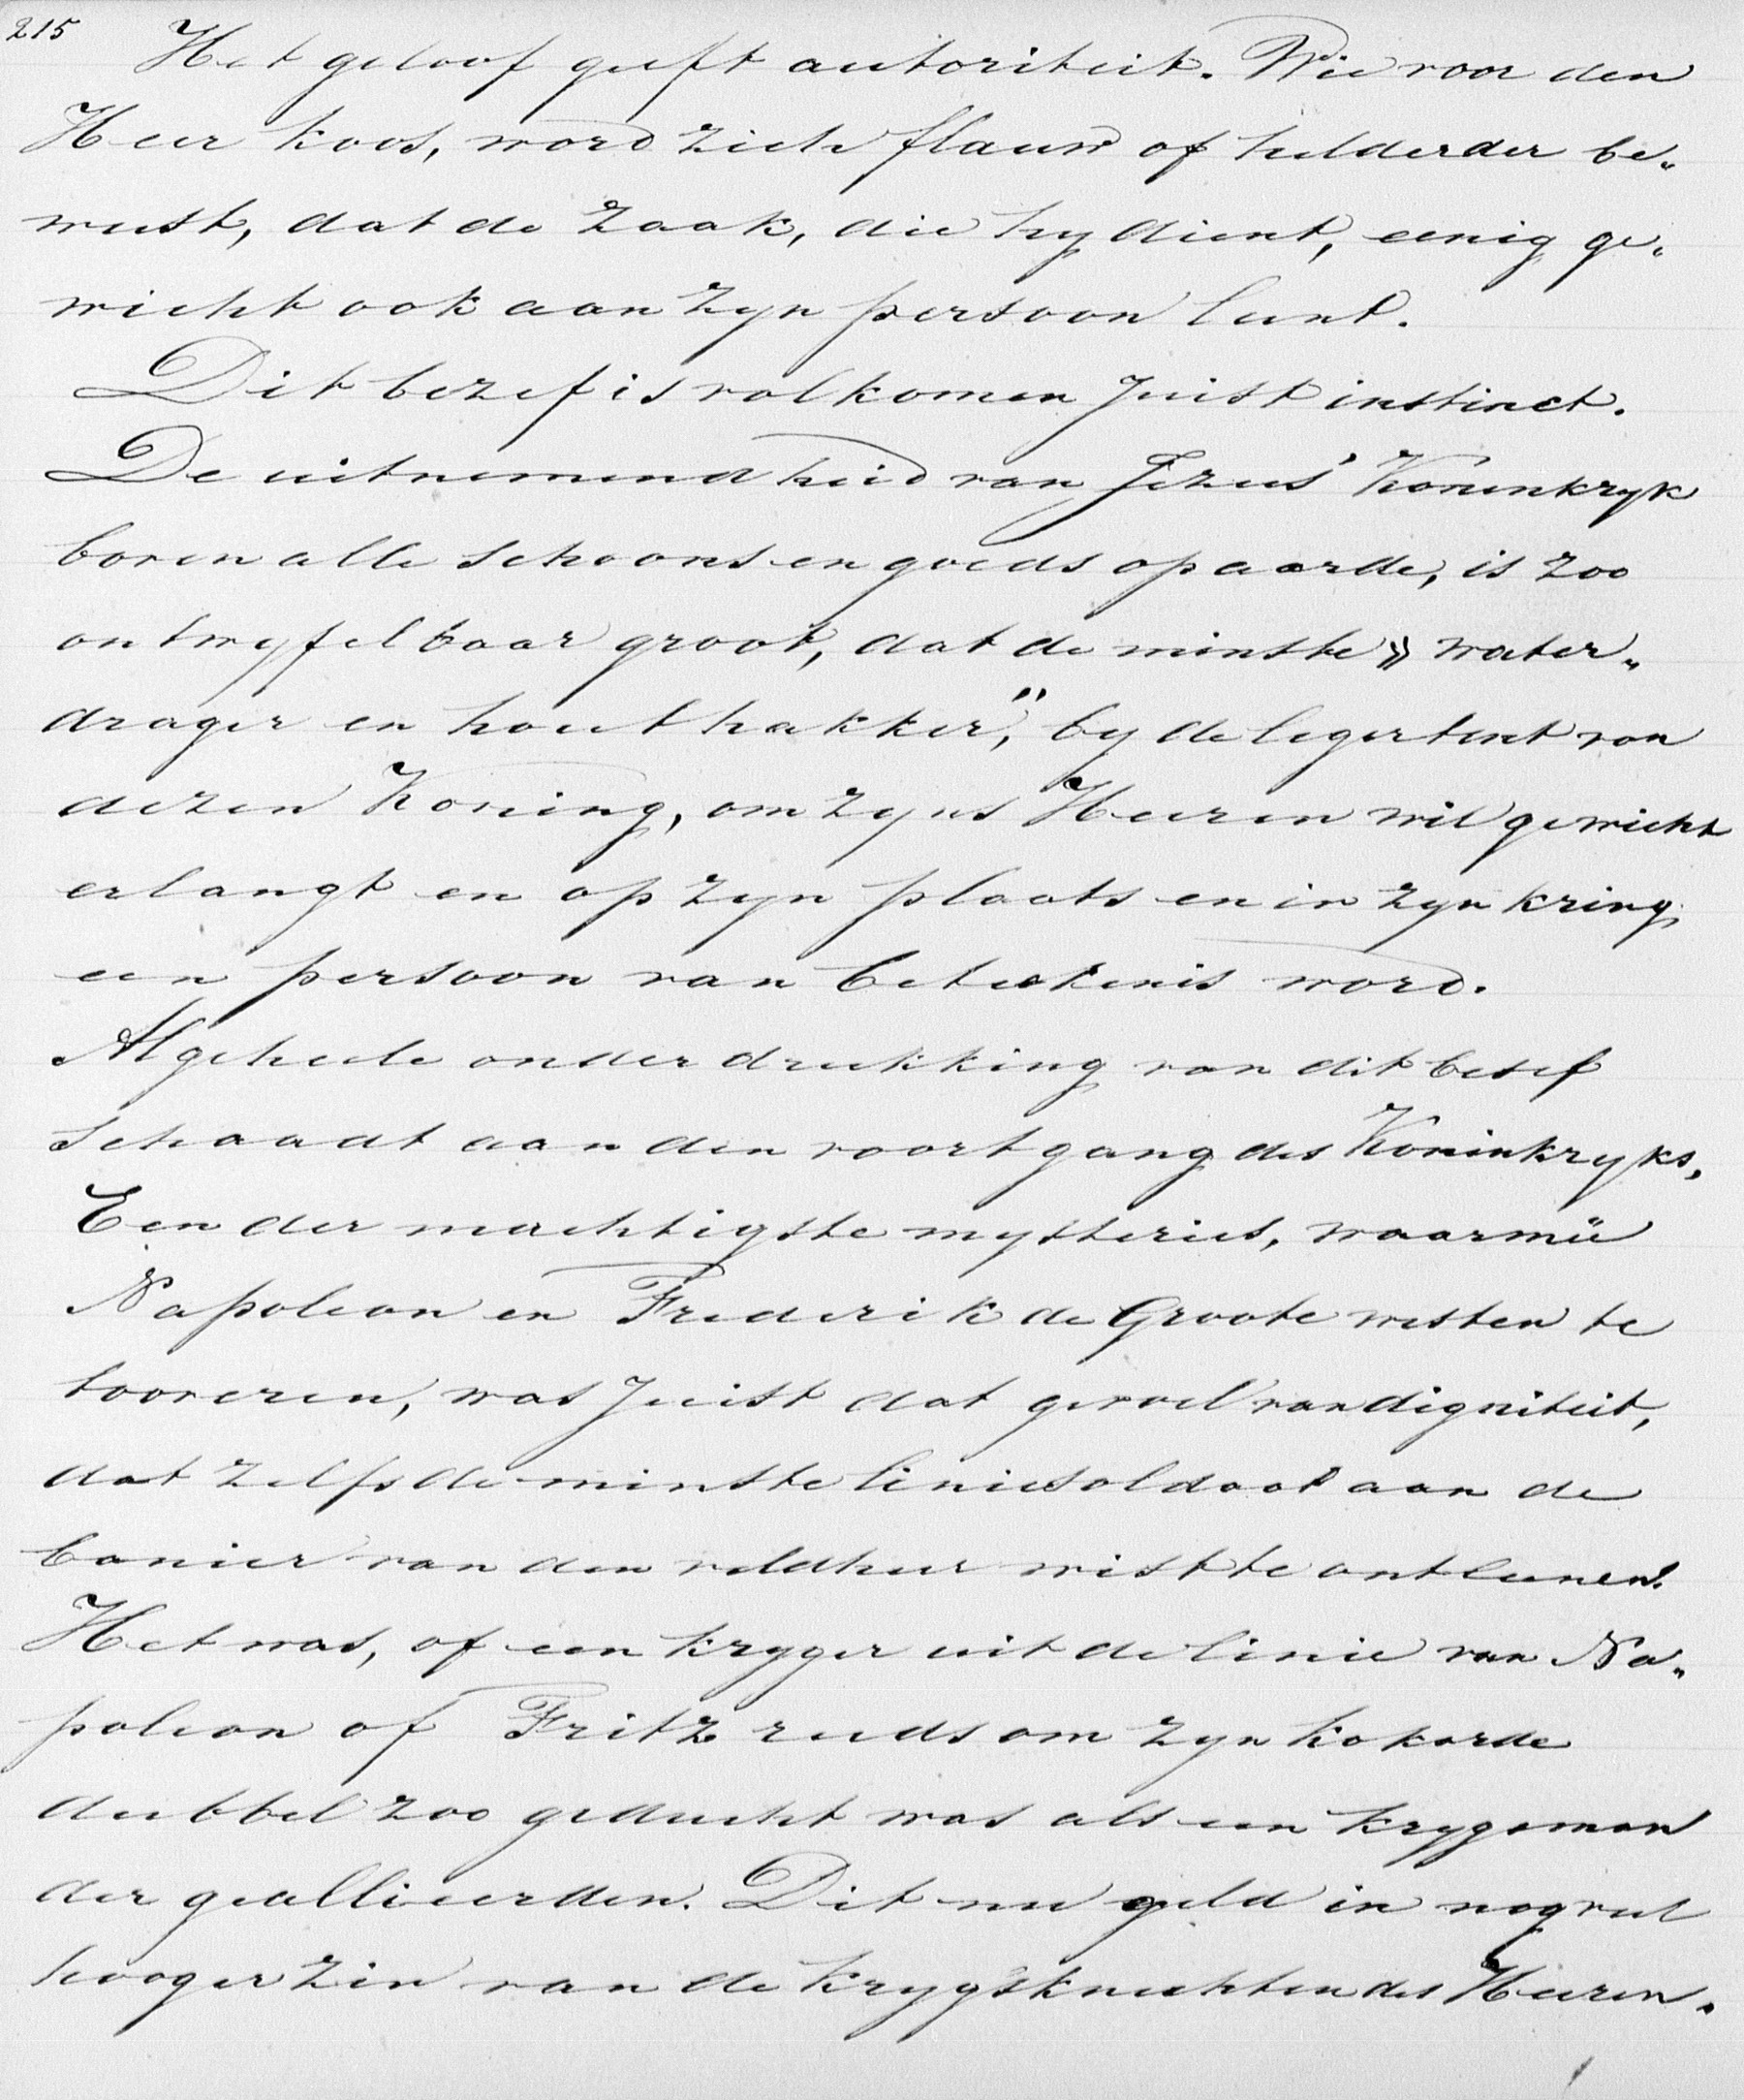 215
Het geloof geeft autoriteit. Wie voor den
Heer koos, word zich flauw of helderder be„
wust, dat de zaak, die hy dient, eenig ge„
wicht ook aan zyn persoon leent.
Dit bezef is volkomen juist instinct.
De uitnemendheid van Jezus' Koninkryk
boven alle schoons en goeds op aarde, is zoo
ontwyfelbaar groot, dat de minste „water„
drager en houthakker," by de legertent van
dezen Koning, om zyns Heeren wil gewicht
erlangt en op zyn plaats en in zyn kring
een persoon van beteekenis word.
Algeheele onderdrukking van dit besef
schaadt aan den voortgang des Koninkryks,
Een der machtigste mysteries, waarmeê
Napoleon en Frederik de Groote wisten te
tooveren, was juist dat gevoel van digniteit,
dat zelfs de minste liniesoldaat aan de
banier van den veldheer wist te ontleenen.
Het was, of een kryger uit de linie van Na„
poleon of Fritz reeds om zyn kokarde
dubbel zoo geducht was als een krygsman
der geallieerden. Dit nu geld in nog veel
hooger zin van de krygsknechten des Heeren.